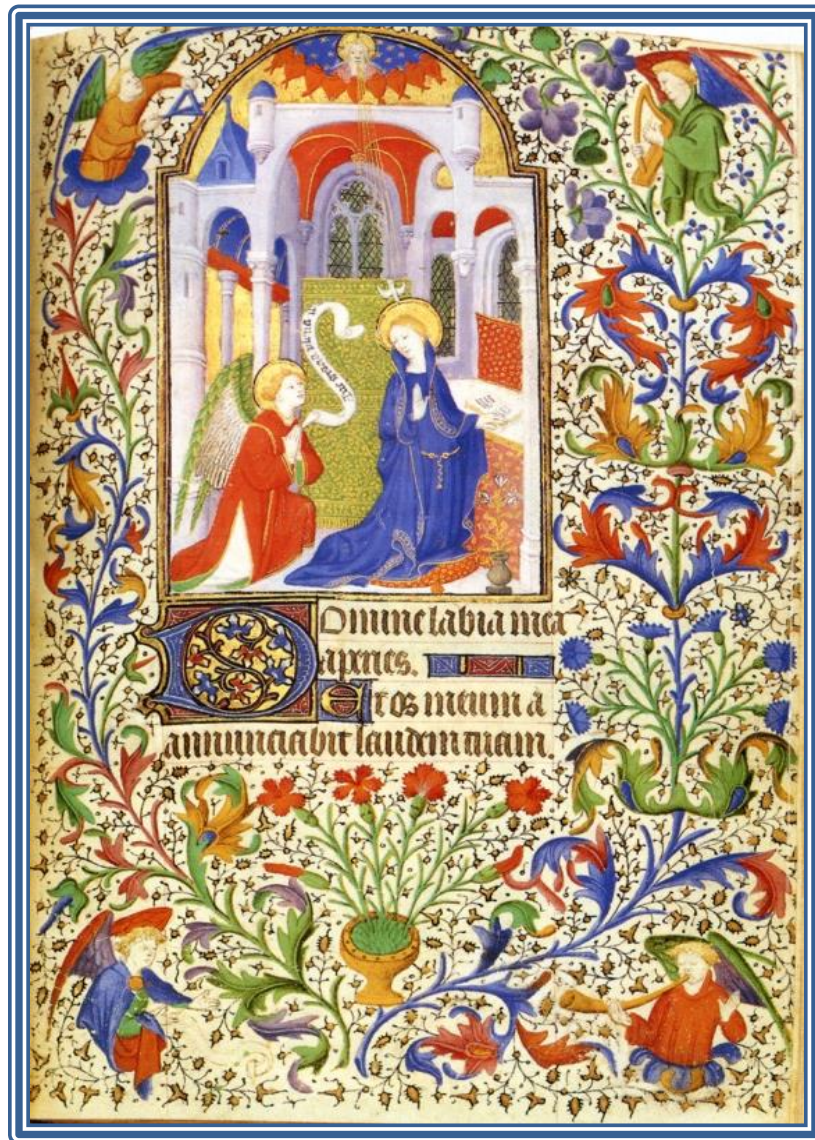 DOmine labia mea
aperies.
Et os meum a
annunciabit laudem tuam